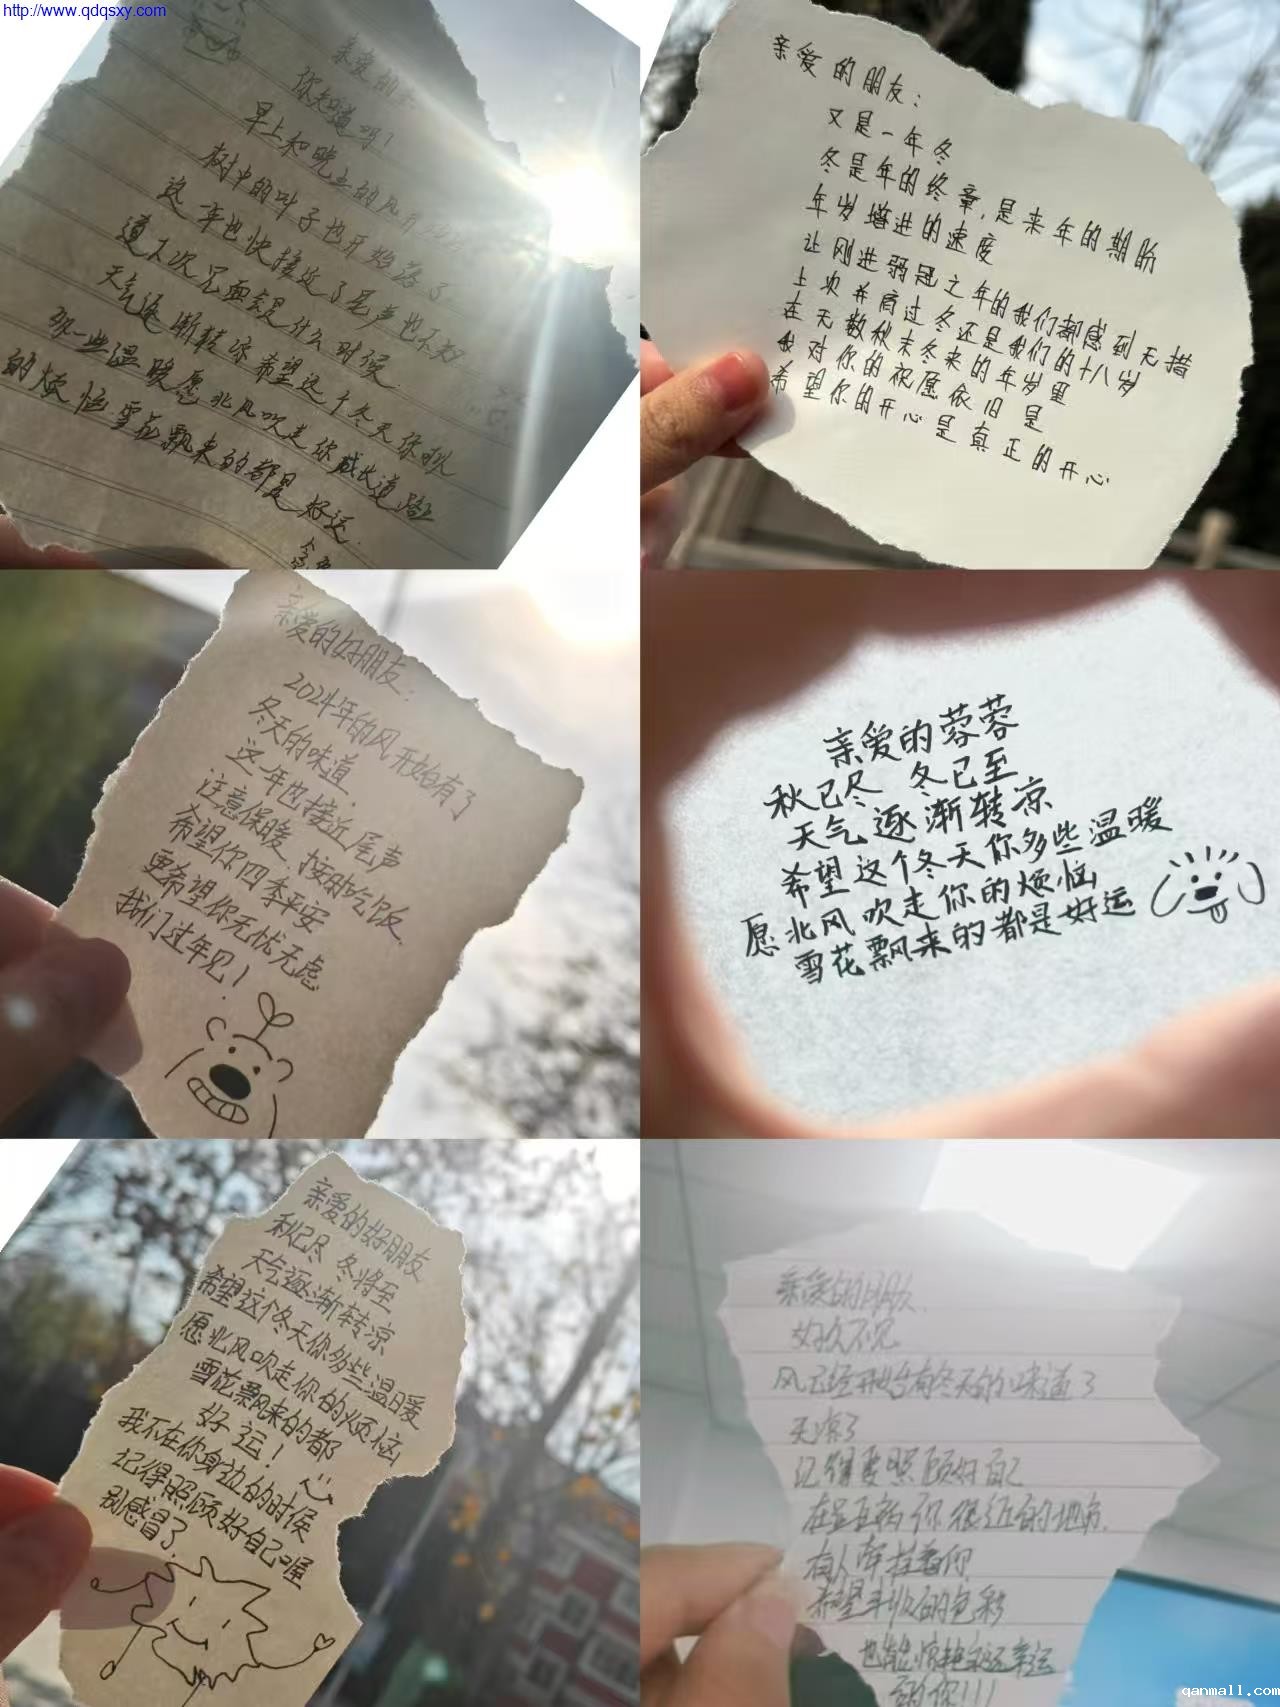 http://www.qdqsxy.com
亲爱的
你知道吗！
早上和晚上的风开始
树中的叶子也开始落了
这一年也快接近了尾声也不知
道下次见面会是什么时候.
天气逐渐转凉希望这个冬天你多
那一些温暖愿北风吹走你成长道路上
的烦恼雪花飘来的都是好运.
亲爱的朋友：
又是一年冬
冬是年的终章,是来年的期盼
年岁增进的速度
让刚进弱冠之年的我们都感到无措
上次并肩过冬还是我们的十八岁
在无数秋末冬来的年岁里
我对你的祝愿依旧是
希望你的开心是真正的开心
亲爱的好朋友：
2024年的风开始有了
冬天的味道
这一年也接近尾声
注意保暖 按时吃饭
希望你四季平安
更希望你无忧无虑
我们过年见！
亲爱的蓉蓉
秋已尽 冬已至
天气逐渐转凉
希望这个冬天你多些温暖
愿北风吹走你的烦恼
雪花飘来的都是好运
亲爱的好朋友
秋已尽 冬将至
天气逐渐转凉
希望这个冬天你多些温暖
愿北风吹走你的烦恼
雪花飘来的都
好运！
我不在你身边的时候
记得照顾好自己喔
别感冒了
亲爱的朋友.
好久不见
风已经开始有冬天的味道了
天凉了
记得要照顾好自己
在显百病 你很近的地方.
有人牵挂着你
希望丰收的色彩
也能惊艳永远幸运
的你!!!
qanmall.com